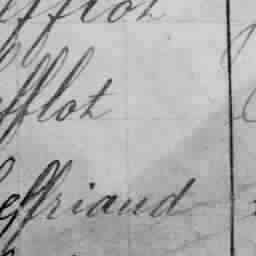 efflot
efflot
Geffriaud